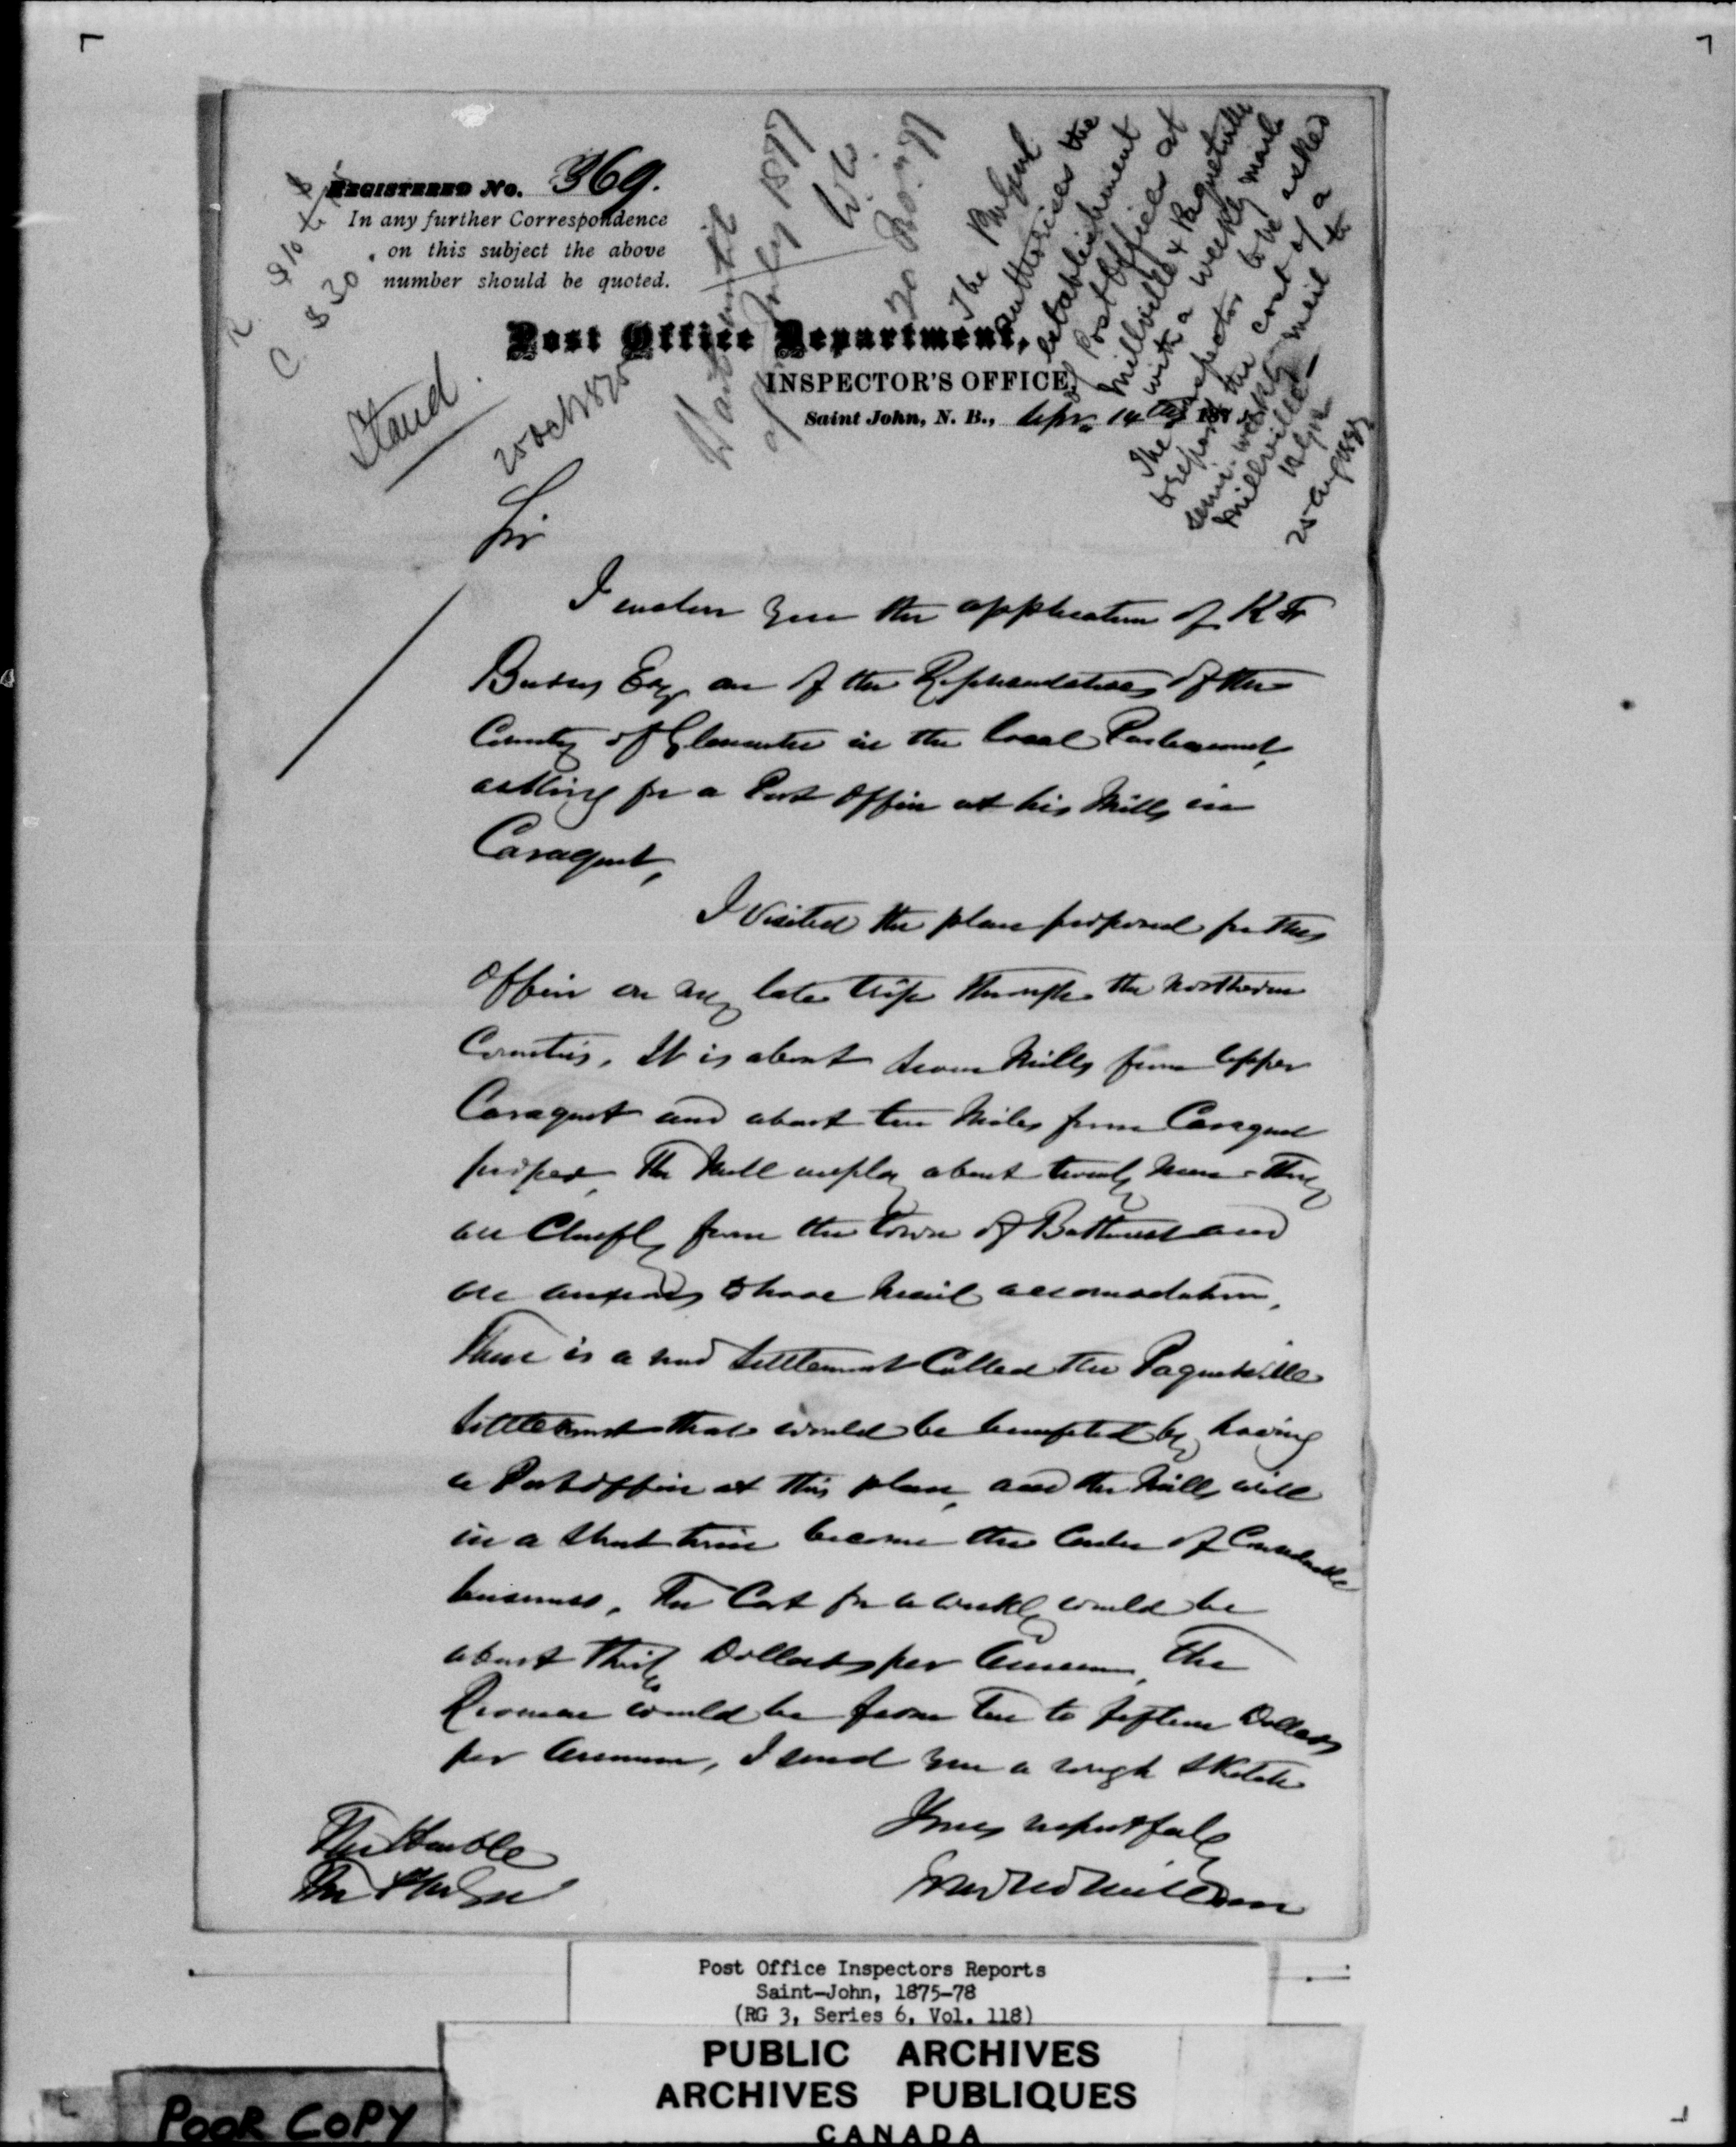 REGISTERED No. 369.
In any further Correspondence
on this subject the above
number should be quoted.
R $10 to $15
C $30
Stand
20 Oct 1875
Wait until
after July 1877
The PMGenl
authorises the
establishment
of Post Offices at
Millville & Paquetville
with a weekly mail
The Inspector to be asked
to report the cost of a
semi-weekly mail to
Millville
25 Aug
Post Office Department,
INSPECTOR'S OFFICE,
Saint John, N. B., 14th 187
Sir
I enclose you the application of K F
Burns Esq one of the Representatives of the
County of Gloucester in the local Parliament,
asking for a Post Office at his Mills in
Caraquet,
I visited the place proposed for this
Office on my late trip through the Northern
Counties. It is about seven Miles from Upper
Caraquet and about ten Miles from Caraquet
proper, The Mill employ about twenty Men - They
are Chiefly from the town of Bathurst and
are anxious to have Mail accomodation,
There is a new Settlement Called the Paquetville
Settlement that would be benefited by having
a Post Office at this place, and the Mills will
in a short time become the Center of Considerable
business, The Cost for a weekly would be
about thirty Dollars per Annum, The
Revenue would be from Ten to fifteen Dollars
per Annum, I send you a rough Sketch
Yours respectfully
John McMillan
The Honble
The P M Gen
Post Office Inspectors Reports
Saint-John, 1875-78
(RG 3, Series 6, Vol. 118)
PUBLIC ARCHIVES
ARCHIVES PUBLIQUES
CANADA
POOR COPY